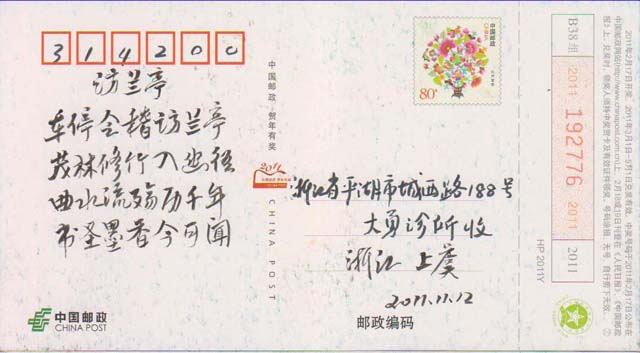 314200
访兰亭
车停会稽访兰亭
茂林修竹入幽径
曲水流觞历千年
书圣墨香今可闻
中国邮政
CHINA POST
中国邮政 贺年有奖
2011
CHINA POST
中国邮政
CHINA
80分
浙江省平湖市城西路188号
大勇诊所收
浙江 上虞
2011.11.12
邮政编码
HP 2011Y
B38组
2011 192776 2011
2011